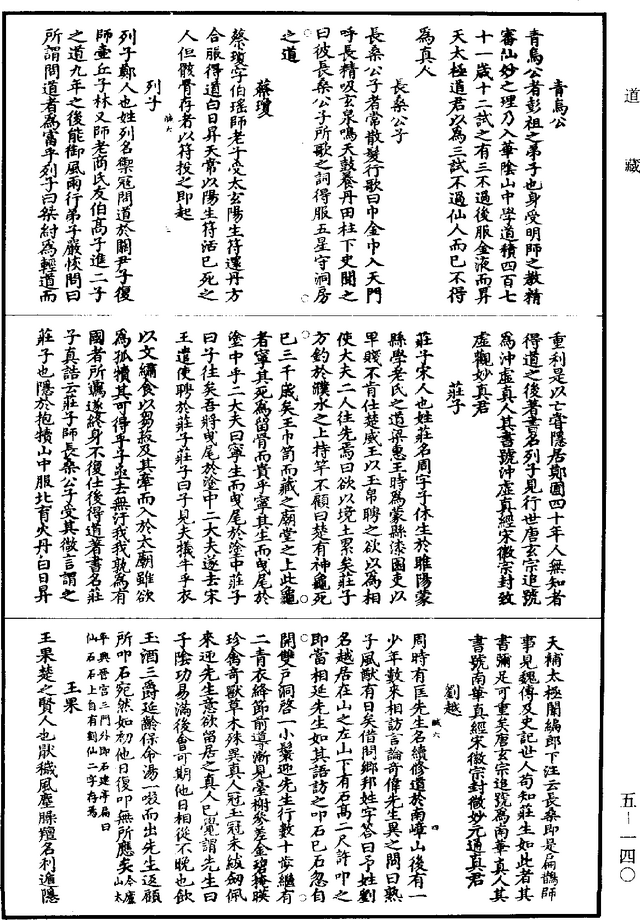 道藏
青烏公
青烏公者彭祖之弟子也身受明師之教精
審仙妙之理乃入華陰山中學道積四百七
十一歲十二試之有三不過後服金液而昇
天太極道君以為三試不過仙人而已不得
為真人
長桑公子
長桑公子者常散髮行歌曰巾金巾入天門
呼長精吸玄泉鳴天鼓養丹田柱下史聞之
曰彼長桑公子所歌之詞得服五星守洞房
之道
蔡瓊
蔡瓊字伯瑤師老子受太玄陽生符還丹方
合服得道白日昇天常以陽生符活已死之
人但骸骨存者以符投之即起
列子
列子鄭人也姓列名禦寇問道於關尹子復
師壺丘子林又師老商氏友伯高子進二子
之道九年之後能御風而行弟子嚴恢問曰
所謂問道者為富乎列子曰桀紂為輕道而
重利是以亡音隱居鄭圃四十年人無知者
得道之後著書名列子見行世唐玄宗追號
為沖虛真人其書號沖虛真經宋徽宗封致
虛觀妙真君
莊子
莊子宋人也姓莊名周字子休生於睢陽蒙
縣學老氏之道梁惠王時為蒙縣漆園吏以
卑賤不肯仕楚威王以玉帛聘之欲以為相
使大夫二人往先焉曰欲以境土累矣莊子
方釣於濮水之上持竿不顧曰楚有神龜死
已三千歲矣王巾笥而藏之廟堂之上此龜
者寧其死為留骨而貴乎寧其生而曳尾於
塗中乎二大夫曰寧生而曳尾於塗中莊子
曰子往矣吾將曳尾於塗中二大夫遂去宋
王遣使聘於莊子莊子曰子見夫犧牛乎衣
以文繡食以芻菽及其牽而入於太廟雖欲
為孤犢其可得乎子亟去無汙我我孰為有
國者所羈遂終身不復仕後得道著書名莊
子真誥云莊子師長桑公子受其微言謂之
莊子也隱於抱犢山中服北育火丹白日昇
天補太極闈編郎下注云長桑即是扁鵲師
事見魏傳及史記世人苟知莊生如此者其
書彌足可重矣唐玄宗追號為南華真人其
書號南華真經宋徽宗封微妙元通真君
劉越
周時有匡先生名續修道於南嶂山後有一
少年數來相訪言論奇偉先生異之問曰熟
子風猷有日矣借問鄉邦姓字答曰予姓劉
名越居在山之左山下有石高二尺許叩之
即當相延先生如其語訪之叩石已石忽自
開雙戶洞啓一小鬟迎先生行數十步繼有
二青衣絳節前導漸見臺榭參差金碧掩映
珍禽奇獸草木殊異真人冠玉冠朱紱劍佩
來迎先生意欲留居之真人已覺謂先生曰
子陰功易滿後會可期他日相從不晚也飲
玉酒三爵延齡保命湯一啜而出先生返顧
所叩石宛然如初他日復叩無所應矣今廬山太
平興晉宮三門外即石建亭扁曰
仙石石上自有劉仙二字存焉
王果
王果楚之賢人也猒穢風塵臊羶名利遁隱
五-一四〇